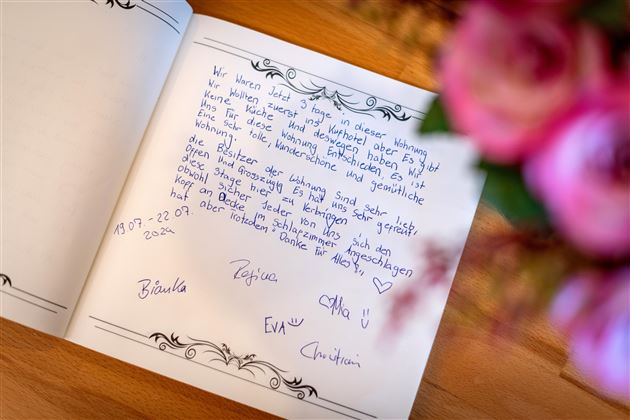 Wir waren Jetzt 3 tage in dieser Wohnung
Wir wollten zuerst ins Kurhotel aber Es gibt
Keine Küche und deswegen haben Wir
Uns Für diese Wohnung Entschieden, Es ist
Eine sehr tolle, Wunderschöne und gemütliche
Wohnung.
die Besitzer der Wohnung sind sehr lieb,
Offen und Grosszügig Es hat uns sehr gefreut
diese 3tage hier zu Verbringen
obwohl sicher Jeder von Uns sich den
Kopf an Decke im Schlafzimmer Angeschlagen
hat aber Trotzdem "Danke Für Alles"!
19.07-22.07.
2024
Regina
Bianka
Mia
EVA
Christian